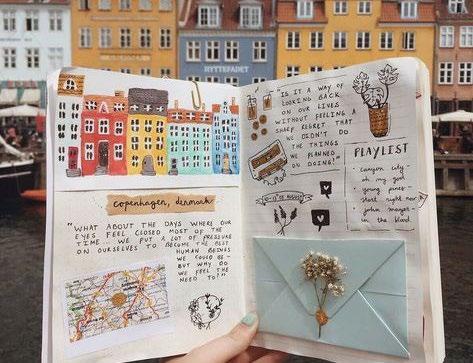 HYTTEFADET
copenhagen, denmark
"WHAT ABOUT THE DAYS WHERE OUR
EYES FEEL CLOSED MOST OF THE
TIME... WE PUT A LOT OF PRESSURE
ON OURSELVES TO BECOME THE BEST
HUMAN BEINGS
WE COULD BE-
BUT WHY DO
WE FEEL THE
NEED TO?"
"IS IT A WAY OF
LOOKING BACK
ON OUR LIVES
WITHOUT FEELING A
SHARP REGRET THAT
WE DIDN'T DO
THE THINGS
WE PLANNED
ON DOING?"
PLAYLIST
- canyon city -
oh my god
- young pines -
- start right now
- john mayer -
in the blood